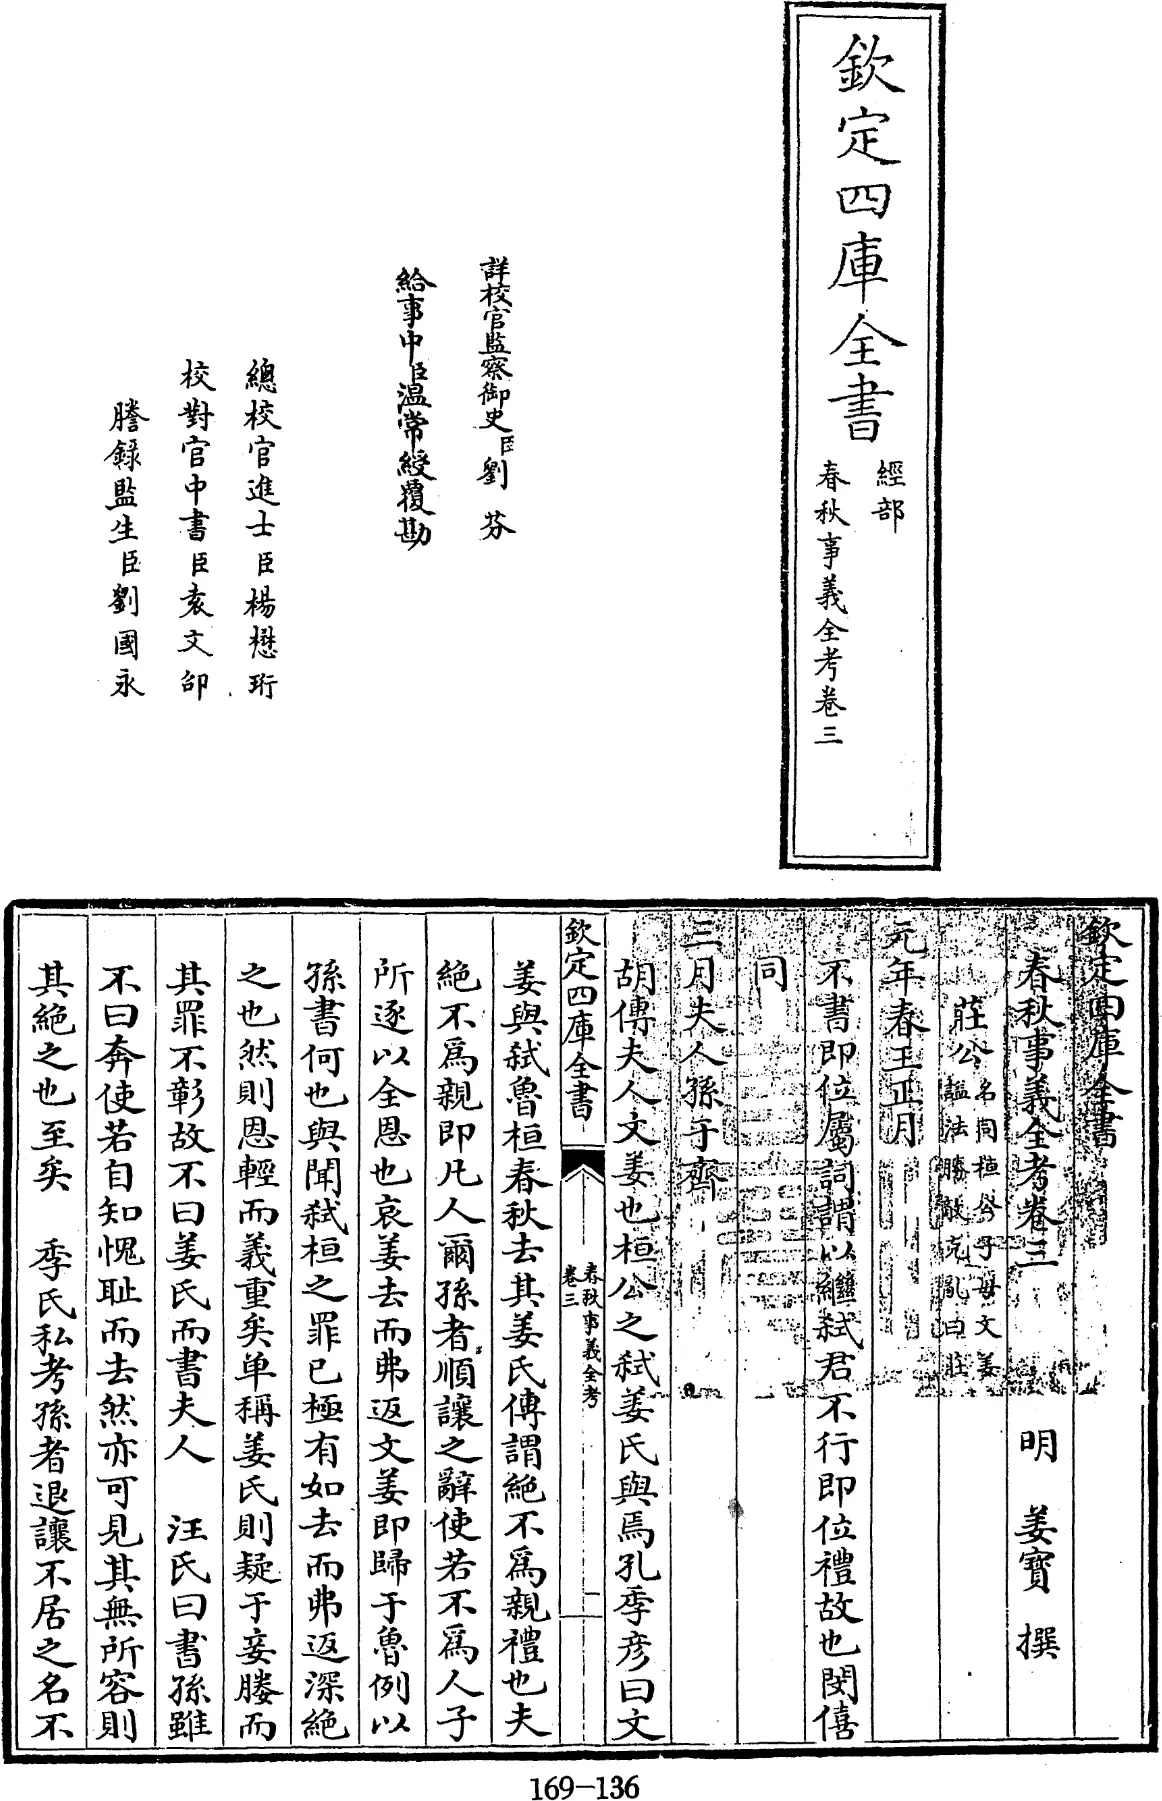 欽定四庫全書
經部
春秋事義全考卷三
詳校官監察御史臣劉芬
給事中臣溫常綬覆勘
總校官進士臣楊懋珩
校對官中書臣袁文邵
謄錄監生臣劉國永
欽定四庫全書
春秋事義全考卷三
明 姜寶 撰
莊公名同桓公子母文姜
諡法勝敵克亂曰莊
元年春王正月
不書即位屬詞謂以繼弒君不行即位禮故也閔僖
同
三月夫人孫于齊
胡傳夫人文姜也桓公之弒姜氏與焉孔季彥曰文
欽定四庫全書
春秋事義全考
卷三
一
姜與弒魯桓春秋去其姜氏傳謂絶不爲親禮也夫
絶不爲親即凡人爾孫者順讓之辭使若不爲人子
所逐以全恩也哀姜去而弗返文姜即歸于魯例以
孫書何也與聞弒桓之罪已極有如去而弗返深絶
之也然則恩輕而義重矣单稱姜氏則疑于妾媵而
其罪不彰故不曰姜氏而書夫人 汪氏曰書孫雖
不曰奔使若自知愧耻而去然亦可見其無所容則
其絶之也至矣 季氏私考孫者退讓不居之名不
169-136